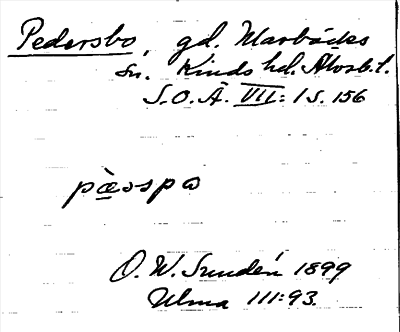 Pedersbo, gd. Marbäcks
sn. Kinds hd. Älvsb. l.
S.O.Ä. VII: 1 s. 156
pæ̀sspo
O. W. Sundén 1899
Ulma 111:93.